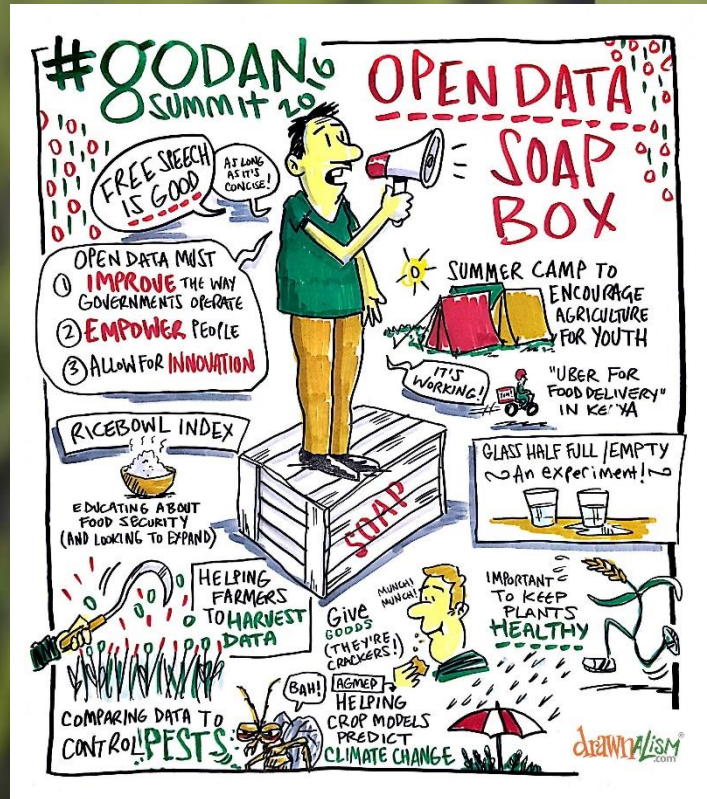 #GODAN
SUMMIT 2016
OPEN DATA
SOAP
BOX
FREE SPEECH
IS GOOD
AS LONG
AS IT'S
CONCISE!
OPEN DATA MUST
1 IMPROVE THE WAY
GOVERNMENTS OPERATE
2 EMPOWER PEOPLE
3 ALLOW FOR INNOVATION
SUMMER CAMP TO
ENCOURAGE
AGRICULTURE
FOR YOUTH
IT'S
WORKING!
"UBER FOR
FOOD DELIVERY"
IN KENYA
RICEBOWL INDEX
EDUCATING ABOUT
FOOD SECURITY
(AND LOOKING TO EXPAND)
SOAP
GLASS HALF FULL/EMPTY
An experiment!
HELPING
FARMERS
TO HARVEST
DATA
Give
GOODS
(THEY'RE
CRACKERS!)
MUNCH!
MUNCH!
IMPORTANT
TO KEEP
PLANTS
HEALTHY
COMPARING DATA TO
CONTROL PESTS
BAH!
AGMEP
HELPING
CROP MODELS
PREDICT
CLIMATE CHANGE
drawnalism
.com